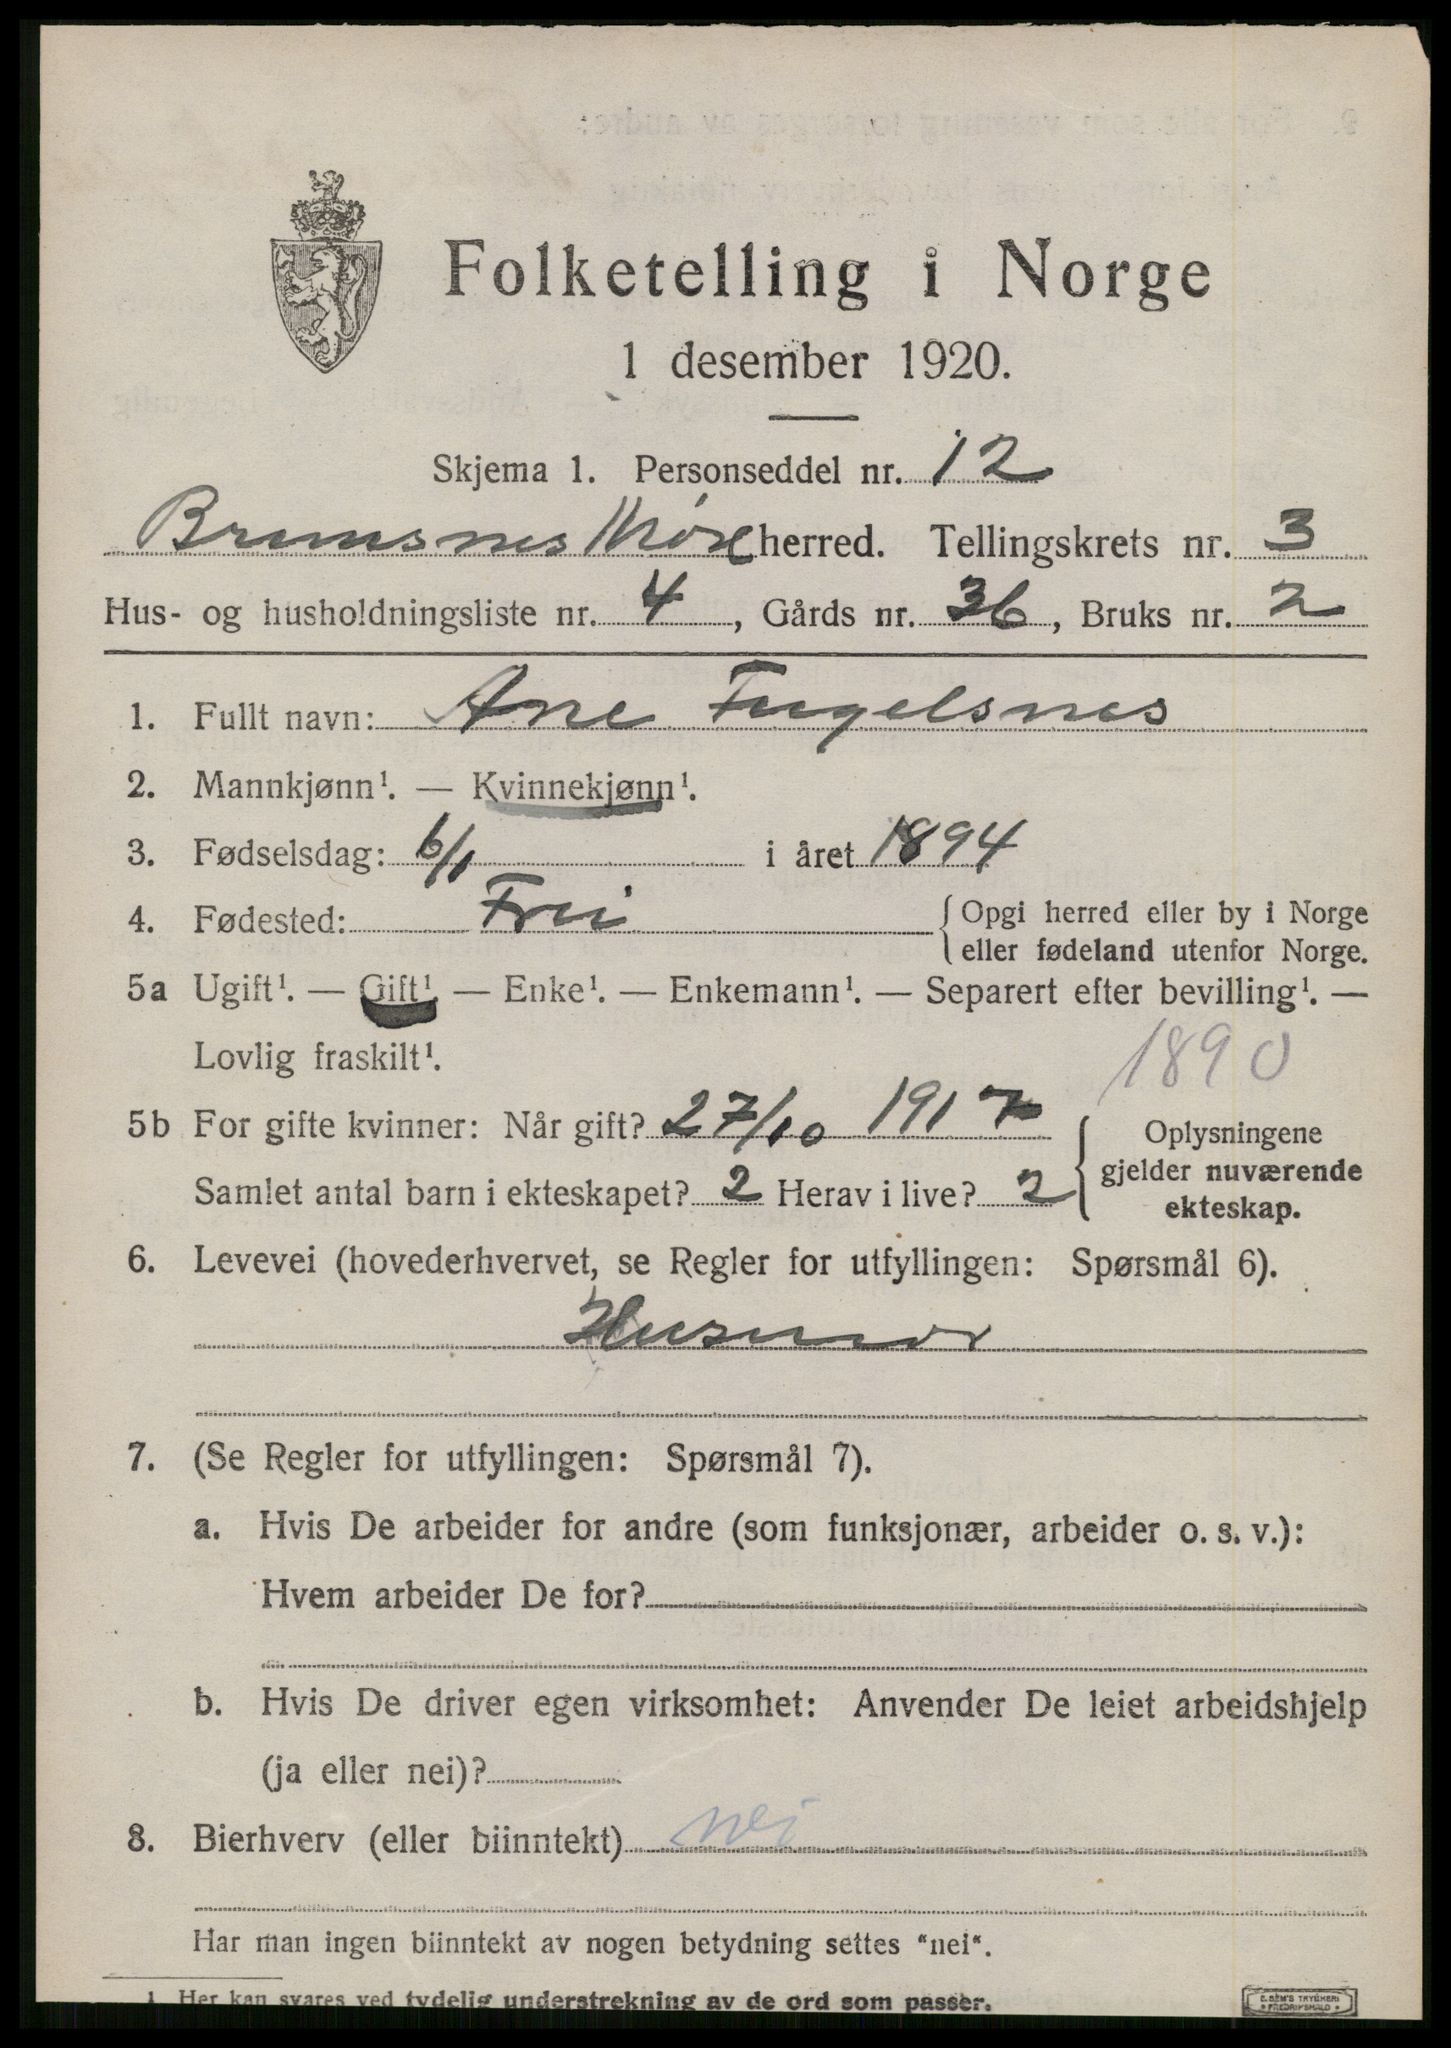 Folketelling i Norge
1 desember 1920.
Skjema 1. Personseddel nr. 12
Bremsnes Møre herred. Tellingskrets nr. 3
Hus- og husholdningsliste nr. 4, Gårds nr. 36, Bruks nr. 2
1. Fullt navn: Ane Fugelsnes
2. Mannkjønn¹. — Kvinnekjønn¹.
3. Fødselsdag: 6/1 i året 1894
4. Fødested: Frei {Opgi herred eller by i Norge
eller fødeland utenfor Norge.
5a Ugift¹. — Gift¹. — Enke¹. — Enkemann¹. — Separert efter bevilling¹. —
Lovlig fraskilt¹.
1890
5b For gifte kvinner: Når gift? 27/10 1917
Samlet antal barn i ekteskapet? 2 Herav i live? 2
Oplysningene
gjelder nuværende
ekteskap.
6. Levevei (hovederhvervet, se Regler for utfyllingen: Spørsmål 6).
Husmor
7. (Se Regler for utfyllingen: Spørsmål 7).
a. Hvis De arbeider for andre (som funksjonær, arbeider o. s. v.):
Hvem arbeider De for?
b. Hvis De driver egen virksomhet: Anvender De leiet arbeidshjelp
(ja eller nei)?
8. Bierhverv (eller biinntekt) nei
Har man ingen biinntekt av nogen betydning settes "nei".
1 Her kan svares ved tydelig understrekning av de ord som passer.
E. SEM'S TRYKKERI
FREDRIKSHALD